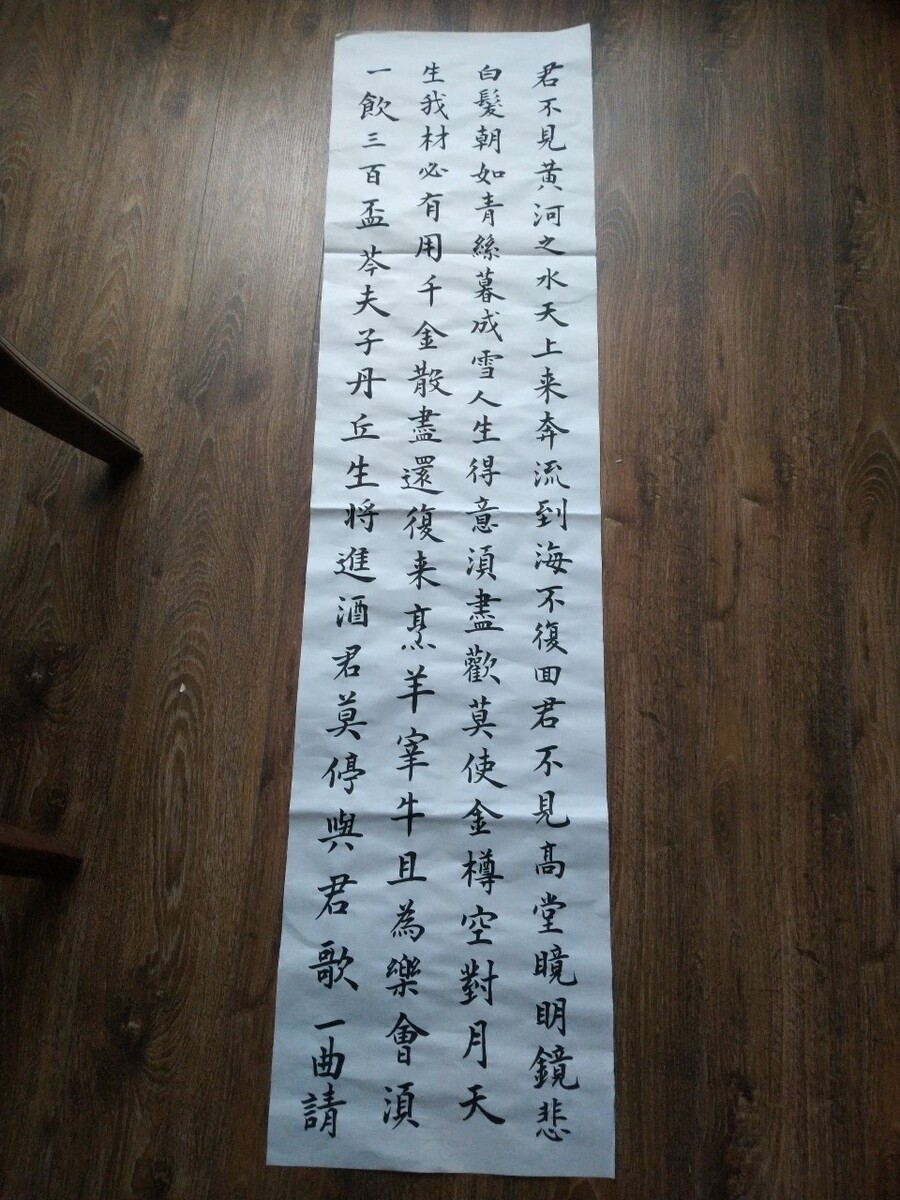 君不見黄河之水天上来奔流到海不復囬君不見髙堂明鏡悲
白髮朝如青絲暮成雪人生得意湏盡歡莫使金樽空對月天
生我材必有用千金散盡還復来烹羊宰牛且為樂會湏
一飲三百盃芩夫子丹丘生将進酒君莫停與君歌一曲請